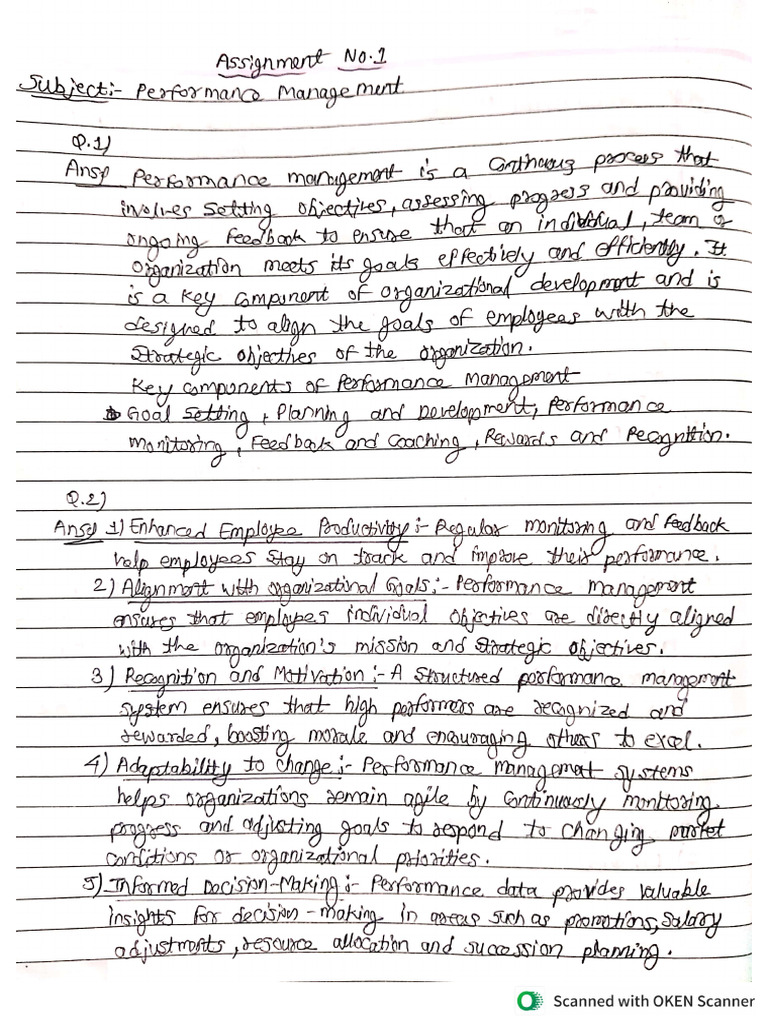 Assignment No.1
Subject:- Performance Management
Q.1)
Ans) Performance management is a continuous process that
involves setting objectives, assessing progress and providing
ongoing feedback to ensure that an individual, team or
organization meets its goals effectively and efficiently. It
is a key component of organizational development and is
designed to align the goals of employees with the
strategic objectives of the organization.
Key components of Performance Management
Goal Setting, Planning and Development, Performance
monitoring, Feedback and Coaching, Rewards and Recognition.
Q.2)
Ans) 1) Enhanced Employee Productivity:- Regular monitoring and feedback
help employees stay on track and improve their performance.
2) Alignment with organizational Goals:- Performance management
ensures that employees individual objectives are directly aligned
with the organization's mission and strategic objectives.
3) Recognition and Motivation:- A Structured performance management
system ensures that high performers are recognized and
rewarded, boosting morale and encouraging others to excel.
4) Adaptability to change:- Performance management systems
helps organizations remain agile by continuously monitoring
progress and adjusting goals to respond to changing market
conditions or organizational priorities.
5) Informed Decision-Making:- Performance data provides valuable
insights for decision-making in areas such as promotions, salary
adjustments, resource allocation and succession planning.
Scanned with OKEN Scanner